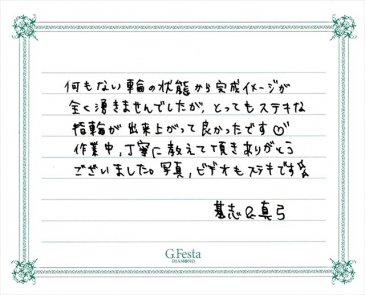 何もない輪の状態から完成イメージが
全く湧きませんでしたが、とってもステキな
指輪が出来上がって良かったです♡
作業中、丁寧に教えて頂きありがとう
ございました。写真、ビデオもステキです☆
基志&真弓
G.Festa
DIAMOND